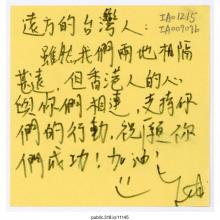 遠方的台灣人：
IA01215
IA009096
雖然我們兩地相隔
甚遠，但香港人的心
與你們相連，支持你
們的行動，祝願你
們成功！加油！
public.318.io/11145